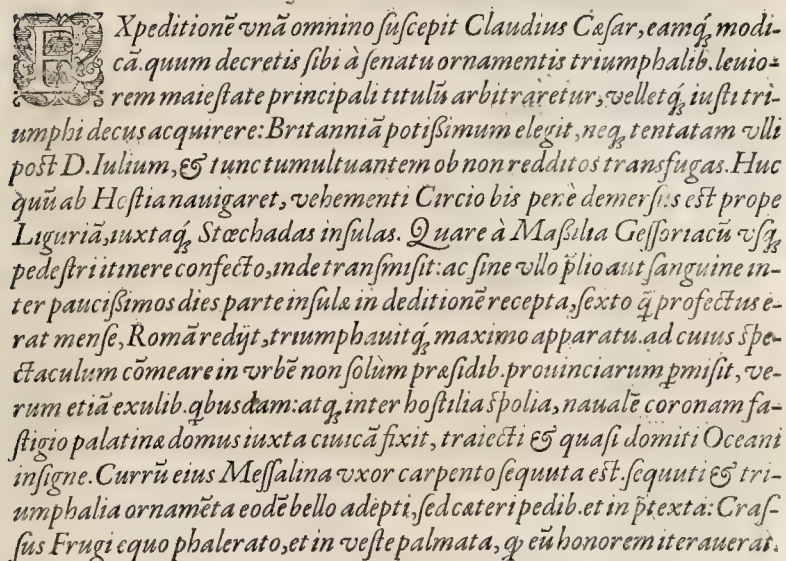 EXpeditionẽ vnã omnino ſuſcepit Claudius Cæſar, eamq́; modi-
cã. quum decretis ſibi à ſenatu ornamentis triumphalib. leuio-
rem maieſtate principali titulũ arbitraretur, velletq́; iuſti tri-
umphi decus acquirere: Britanniã potiſsimum elegit, neq; tentatam vlli
poſt D. Iulium, & tunc tumultuantem ob non redditos transfugas. Huc
quũ ab Hoſtia nauigaret, vehementi Circio bis penè demerſus eſt prope
Liguriã, iuxtaq́; Stœchadas inſulas. Quare à Maſsilia Geſſoriacũ vſq;
pedeſtri itinere confecto, inde tranſmiſit: ac ſine vllo p̃lio aut ſanguine in-
ter pauciſsimos dies parte inſulæ in deditionẽ recepta, ſexto q̃ profectus e-
rat menſe, Romã redijt, triumphauitq́; maximo apparatu. ad cuius ſpe-
ctaculum cõmeare in vrbẽ non ſolùm præſidib. prouinciarum ꝑmiſit, ve-
rum etiã exulib. qbusdam: atq; inter hoſtilia ſpolia, naualẽ coronam fa-
ſtigio palatinæ domus iuxta ciuicã fixit, traiecti & quaſi domiti Oceani
inſigne. Currũ eius Meſſalina vxor carpento ſequuta eſt. ſequuti & tri-
umphalia ornamẽta eodẽ bello adepti, ſed cæteri pedib. et in p̃texta: Craſ-
ſus Frugi equo phalerato, et in veſte palmata, ꝙ eũ honorem iterauerat.